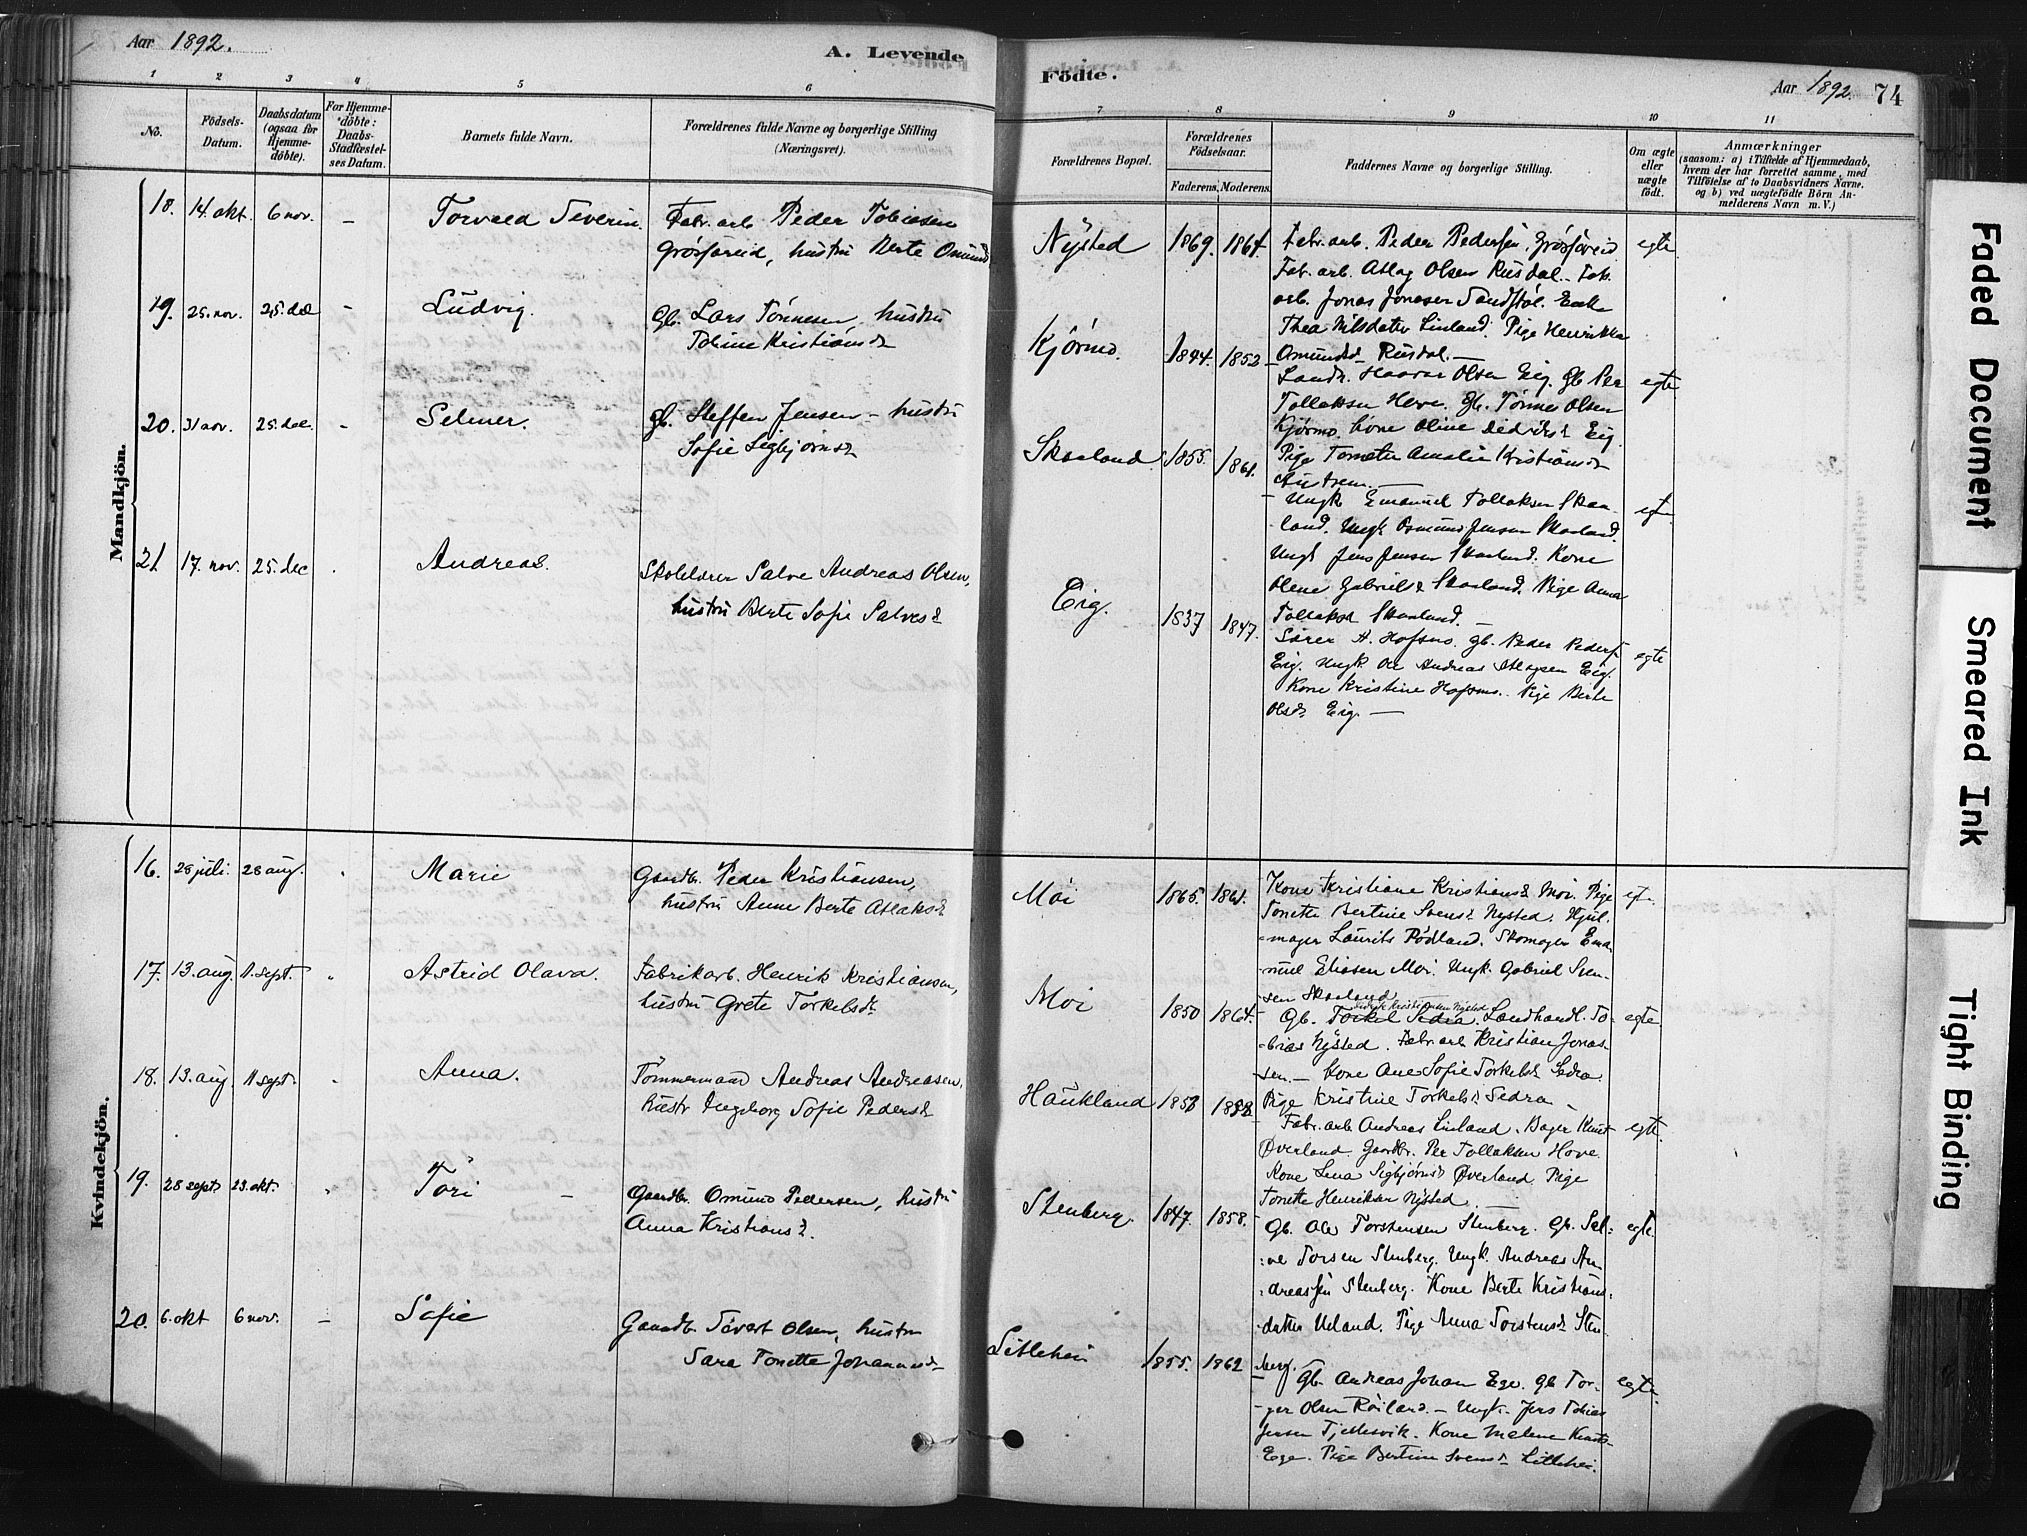 Aar 1892.
A. Levende
Födte.
Aar 1892. 74
1 2 3 4 5 6
7 8 9 10 11
No.
Födsels-
Datum.
Daabsdatum
(ogsaa for
Hjemme-
döbte).
For Hjemme-
döbte:
Daabs-
Stadfæstel-
ses Datum.
Barnets fulde Navn.
Forældrenes fulde Navne og borgerlige Stilling
(Næringsvei).
Forældrenes Bopæl.
Forældrenes
Födselsaar.
Faderens. Moderens.
Faddernes Navne og borgerlige Stilling.
Om ægte
eller
uægte
födt.
Anmærkninger
(saasom: a) i Tilfælde af Hjemmedaab,
hvem der har forrettet samme, med
Tilföielse af to Daabsvidners Navne,
og b) ved uægtefödte Börn An-
melderens Navn m. V.)
Mandkjön.
18. 14. okt. 6 nov. – Torvald Severin.
Fabr. arb. Peder Tobiasen
Grösfareid, hustru Berte Omund
Nysted 1869. 1864.
Fabr. arb. Peder Pedersen, Grösfareid
Fab. arb. Atlag Olsen Rusdal. Fab.
arb. Jonas Jonasen Sandstöl. Enke
Thea Nilsdatter Linland. Pige Henrikka
Omundsd Rusdal. –
egte
19. 25. nov. 25. dec – Ludvig.
Gb. Lars Tönnesen, hustru
Tobine Kristiansd
Kjörmo. 1844. 1852
Landh. Haavar Olsen Eig. Gb. Per
Tollaksen Hove. Gb. Tönnes Olsen
Kjörmo. Kone Oline Didriksd Eig.
Pige Tomette Amalie Kristiansd
Austrem. –
egte
20. 31 nov. 25. dec. – Selmer.
Gb. Steffen Jensen – hustru
Sofie Sigbjörnsd
Skaaland 1855. 1861.
Ungk Emanuel Tollaksen Skaa-
land. Ungk Osmund Jensen Skaaland.
Ungk Jens Jensen Skaaland. Kone
Olene Gabrielsd Skaaland. Pige Anna
Tollaksd Skaaland. –
egte
21 17. nov. 25. dec . Andreas.
Skolelærer Salve Andreas Olsen,
hustru Berte Sofie Salvesd
Eig. 1837 1847.
Sören A. Hofsmo. gb. Peder Peders.
Eig. Ungk. Ole Andreas Atlagsen Eig.
Kone Kristine Hofsmo. Pige Berte
Olsd Eig. –
egte
Kvindekjön.
16. 28 juli. 28 aug. Marie
Gaardb. Peder Kristiansen,
hustru Anne Berte Atlaksd
Moi 1865. 1861.
Kone Kristiane Kristiansd Moi. Pige
Tonette Bertine Svensd Nysted. Hjul-
-mager Laurits Rödland. Skomager Ema-
-nuel Eliasen Moi. Ungk. Gabriel Sven-
sen Skaaland
17. 13. aug. 11. sept. Astrid Olava.
Fabrikarb. Henrik Kristiansen,
hustru Grete Torkelsdt.
Moi 1850 1864.
Gb. Torkel Sedra. Landhandl. To-
-bias Nysted. Fabr. arb Kristian Jonas-
sen. – Kone Ane Sofie Torkelsd Sedra.
Pige Kristine Torkelsd Sedra –
egte
18. 13. aug. 11 sept. Anna.
Tömmermand Andreas Andreasen,
hustr Ingeborg Sofie Pedersd
Haukland 1853
Fabr. arb Andreas Linland. Bager Knut
Överland. Gaardbr. Per Tollaksen Hove.
Kone Lena Sigbjörnsd Överland. Pige
Tonette Henriksen Nysted –
egte.
19. 28 sept 23. okt. Tori –
Gaardbr. Omund Pedersen, hustru
Anna Kristiansd.
Stenberg. 1847. 1858.
Gb. Ole Torstensen Stenberg. Gb. Sal-
-ve Torsen Stenberg. Ungk. Andreas An-
-dreassen Stenberg. Kone Berte Kristians-
datter Ueland. Pige Anna Torstensd Sten-
berg.
egte.
20. 6. okt 6 nov. – Sofie
Gaardb. Sivert Olsen, hustru
Sara Tonette Johannesd
Litlehei 1855. 1862
Gb. Andreas Johan Ege. Gb. Tor-
-ger Olsen Röiland. – Ungk. Jens Tobias
Jensen Tjellesvik. Kone Malene Knuts-
Ege. Pige Bertine Svensd Litlehei.
egte.
Faded Document
Smeared Ink
Tight Binding